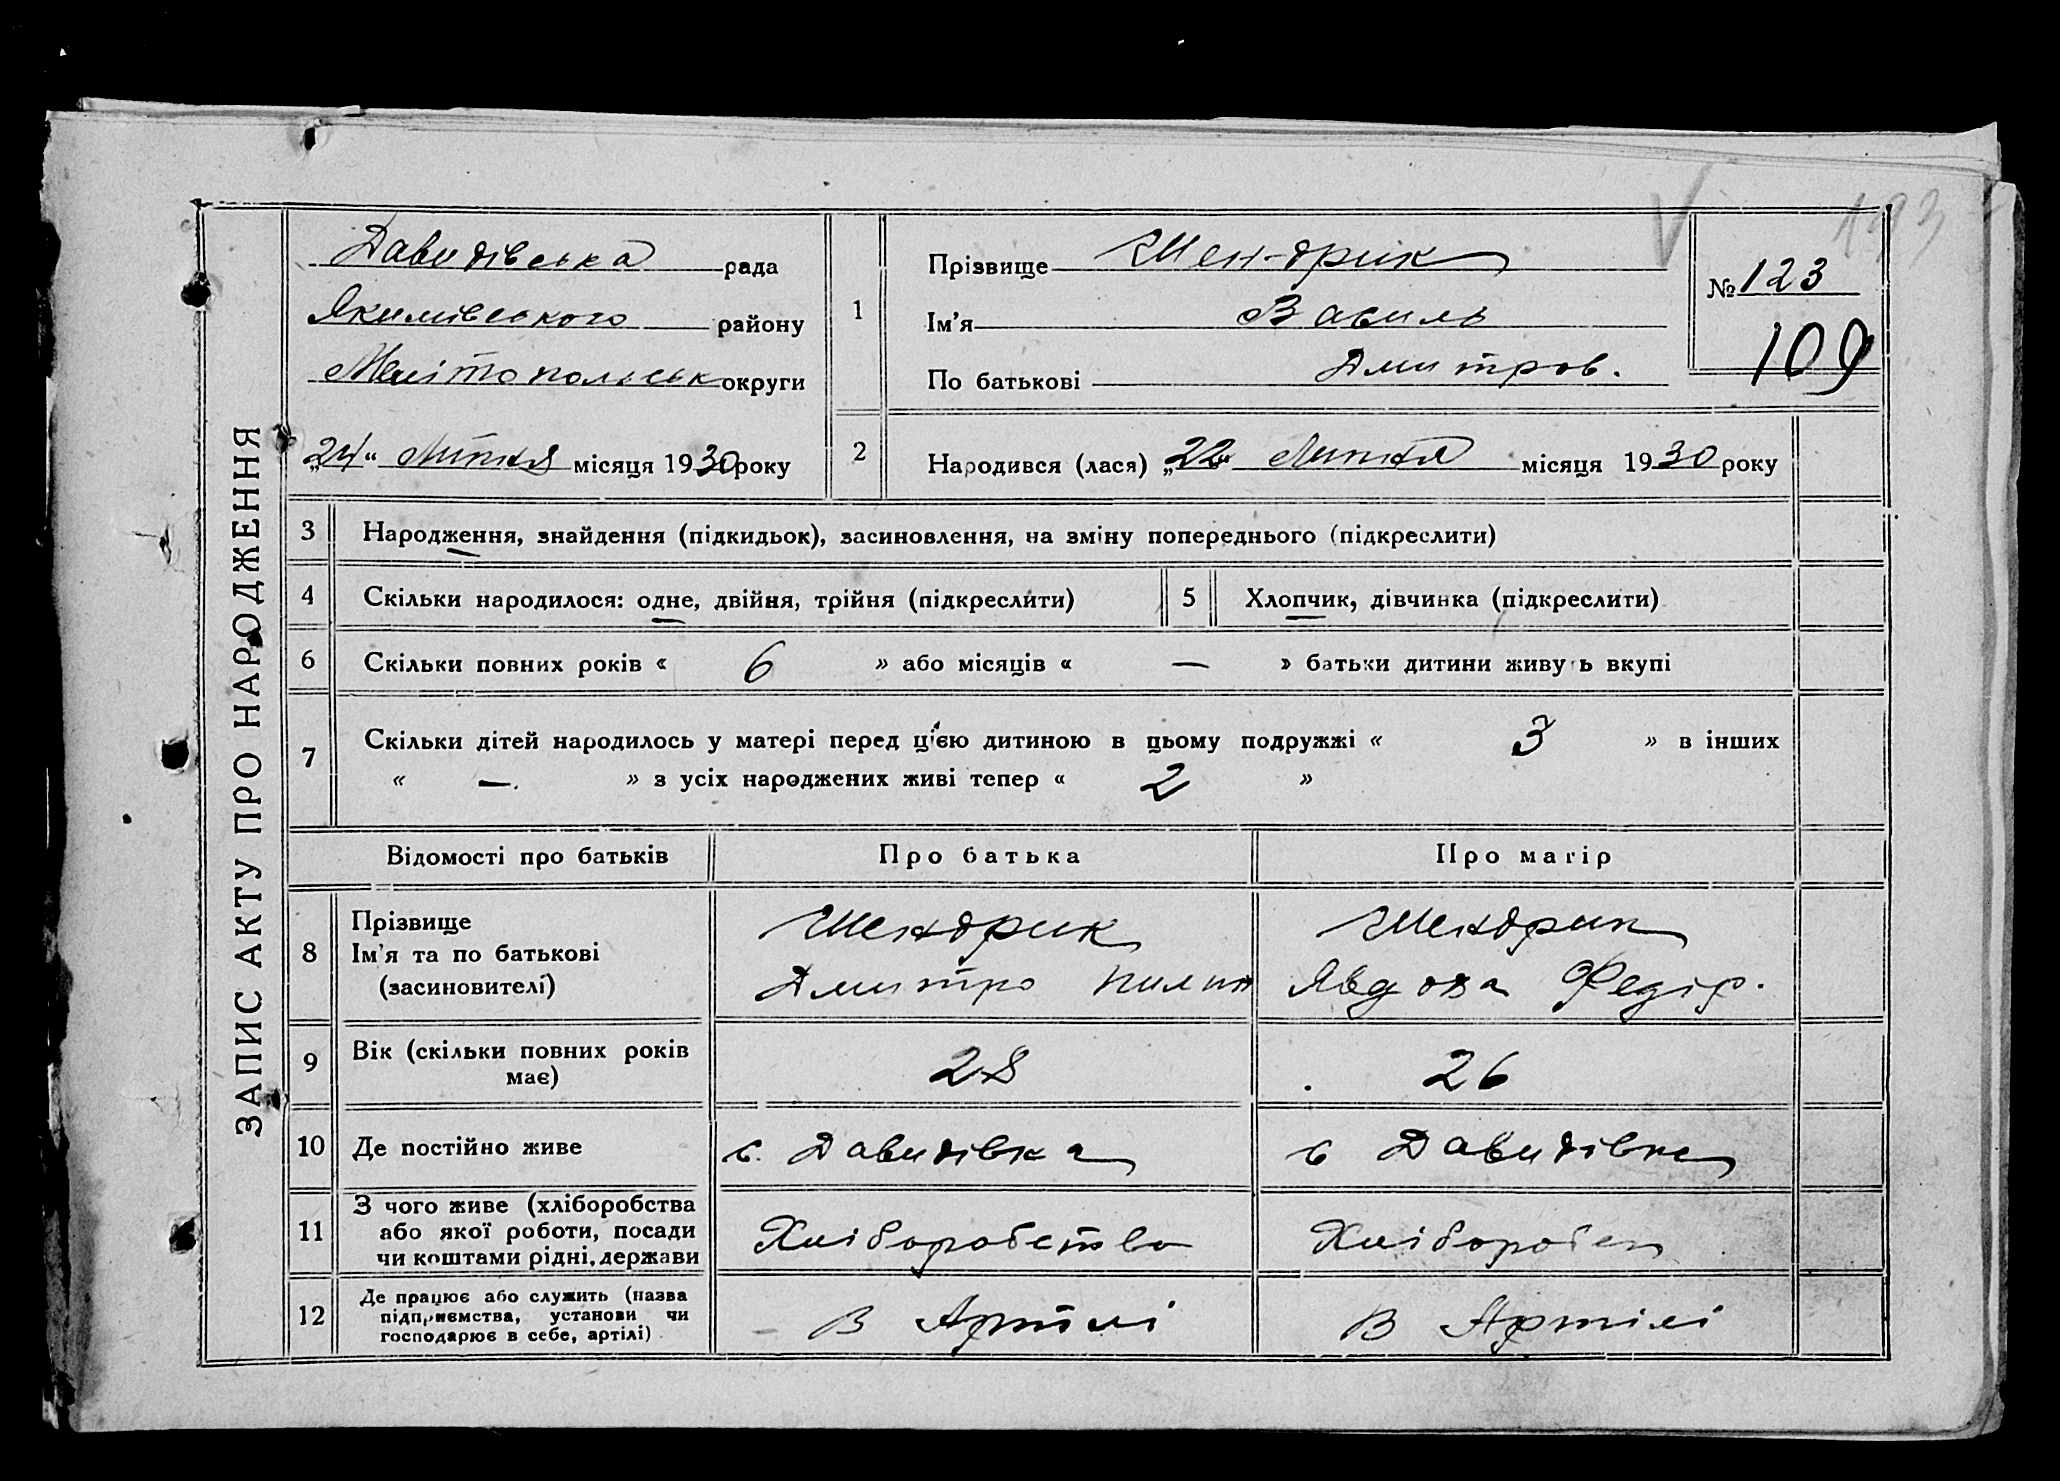 ЗАПИС АКТУ ПРО НАРОДЖЕННЯ
Давидівська рада
Якимівського району
Мелітопольськ округи
„24“ Липня місяця 1930 року
1
Прізвище Шендрик
Ім'я Василь
По батькові Дмитров.
№ 123
109
2
Народився (лася) „22“ Липня місяця 1930 року
3 Народження, знайдення (підкидьок), засиновлення, на зміну попереднього (підкреслити)
4 Скільки народилося: одне, двійня, трійня (підкреслити)
5 Хлопчик, дівчинка (підкреслити)
6 Скільки повних років « 6 » або місяців « — » батьки дитини живуть вкупі
7 Скільки дітей народилось у матері перед цією дитиною в цьому подружжі « 3 » в інших
« — » з усіх народжених живі тепер « 2 »
Відомості про батьків Про батька Про матір
8 Прізвище
Ім'я та по батькові
(засиновителі)
Шендрик
Дмитро Пилип
Шендрик
Явдоха Федір.
9 Вік (скільки повних років
має)
28
26
10 Де постійно живе
с. Давидівка
с Давидівка
11 З чого живе (хліборобства
або якої роботи, посади
чи коштами рідні, держави
Хліборобство
Хлібороб
12 Де працює або служить (назва
підприємства, установи чи
господарює в себе, артілі)
В Артілі
В Артілі